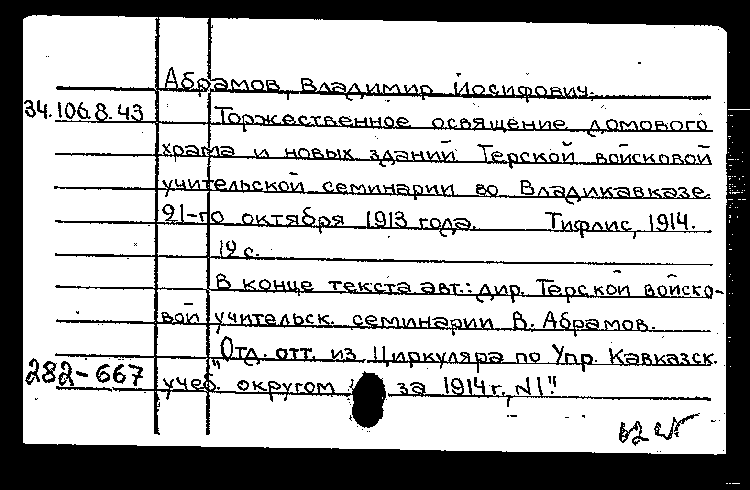 Абрамов, Владимир Иосифович.
34.106.8.43 Торжественное освящение домового
храма и новых зданий Терской войсковой
учительской семинарии во Владикавказе
21-го октября 1913 года. Тифлис, 1914.
12 с.
В конце текста авт.: дир. Терской войско-
вой учительск. семинарии В. Абрамов.
"Отд. отт. из Циркуляра по Упр. Кавказск.
282-667 учеб. округом за 1914 г., N1."